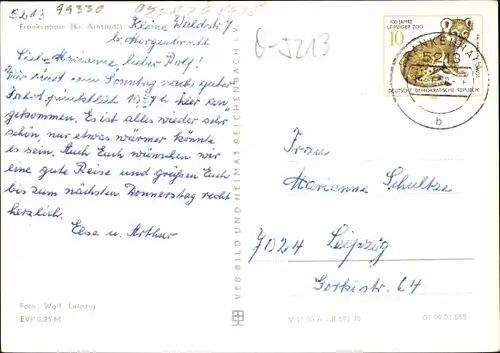 5213 99330
Frankenhain (Kr. Arnstadt)
Kleine Waldstr. 7
b. Morgenbrodt
0-5213
Liebe Marianne, lieber Rolf!
Wir sind am Sonntag nach guter
Fahrt pünktlich 10 h hier an
gekommen. Es ist alles wieder sehr
schön, nur etwas wärmer könnte
es sein. Auch Euch wünschen wir
eine gute Reise und grüßen Euch
bis zum nächsten Donnerstag recht
herzlich.
Elsa u. Arthur
Foto: Wolf, Leipzig
EVP 0,25 M
VEB BILD UND HEIMAT REICHENBACH I. V.
100 JAHRE
LEIPZIGER ZOO
10
DEUTSCHE DEMOKRATISCHE REPUBLIK
FRANKENHAIN
5213
b
Frau
Marianne Schultze
7024 Leipzig
Gorkistr. 64
01 09 01 055